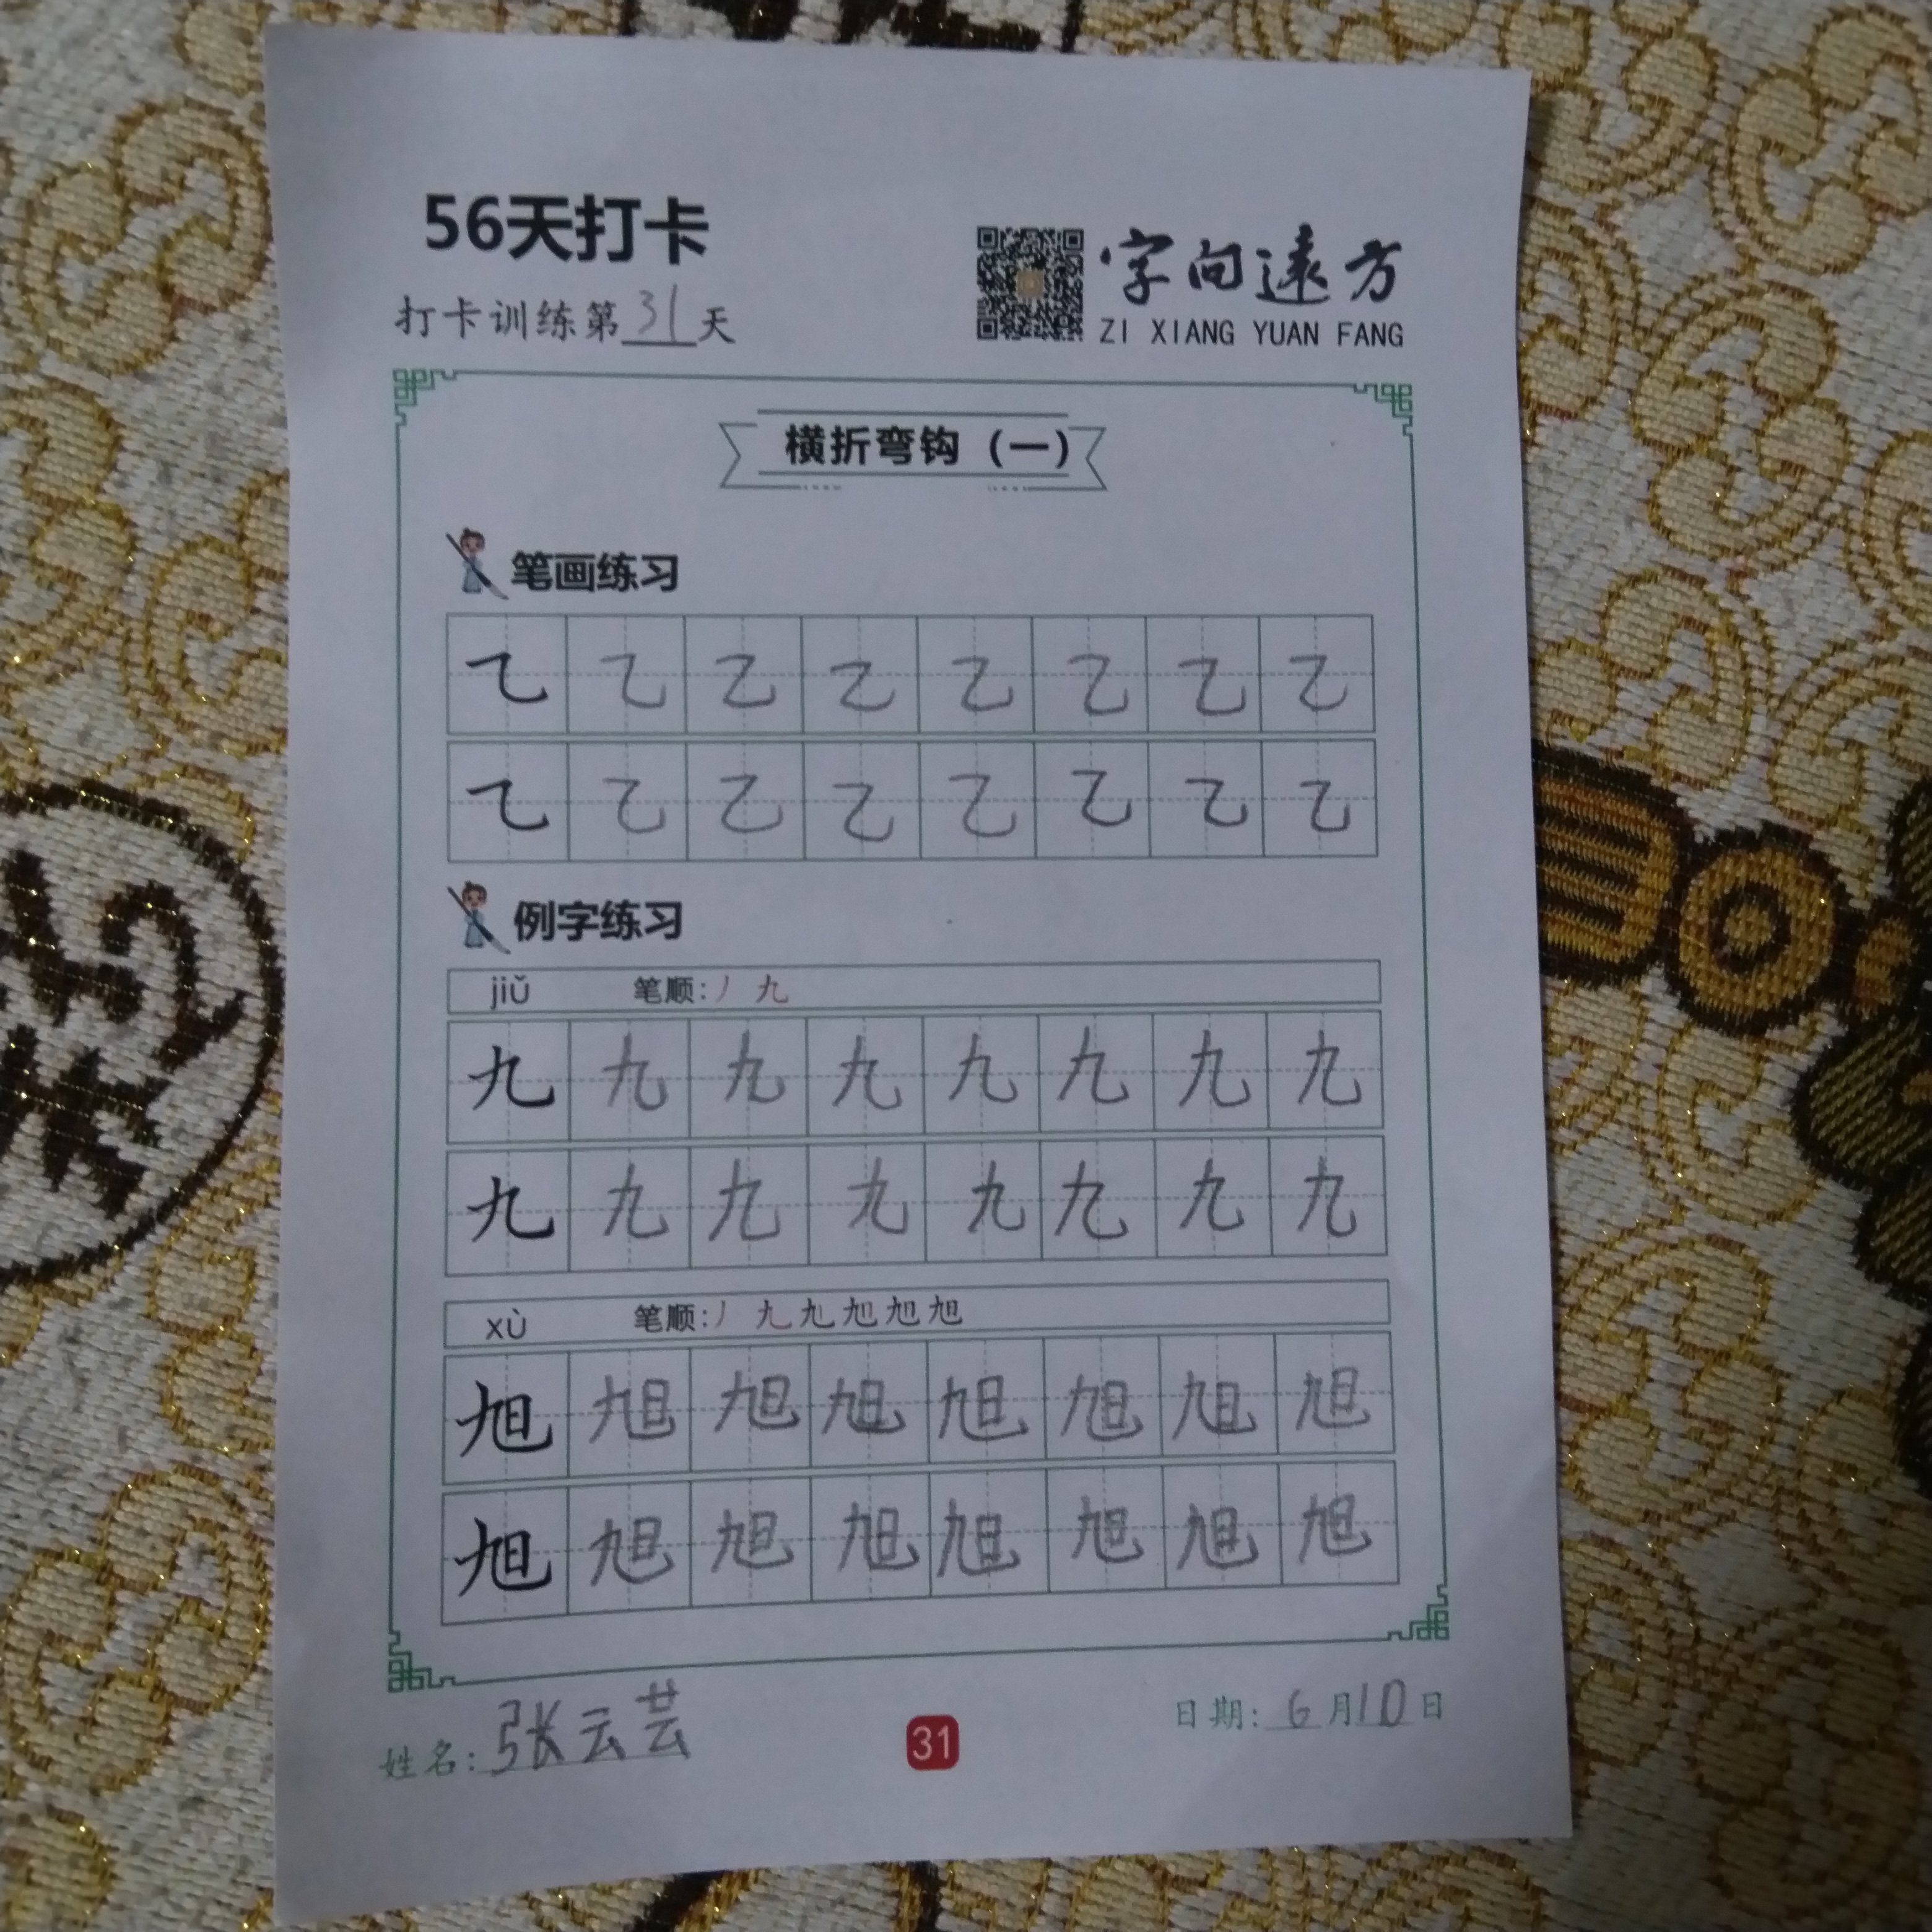 56天打卡
打卡训练第31天
字向遠方
ZI XIANG YUAN FANG
横折弯钩（一）
笔画练习
㇈ ㇈ ㇈ ㇈ ㇈ ㇈ ㇈ ㇈
㇈ ㇈ ㇈ ㇈ ㇈ ㇈ ㇈ ㇈
例字练习
jiǔ 笔顺:丿 九
九 九 九 九 九 九 九 九
九 九 九 九 九 九 九 九
xù 笔顺:丿 九 九 旭 旭 旭
旭 旭 旭 旭 旭 旭 旭 旭
旭 旭 旭 旭 旭 旭 旭 旭
姓名: 张云芸
31
日期: 6月10日